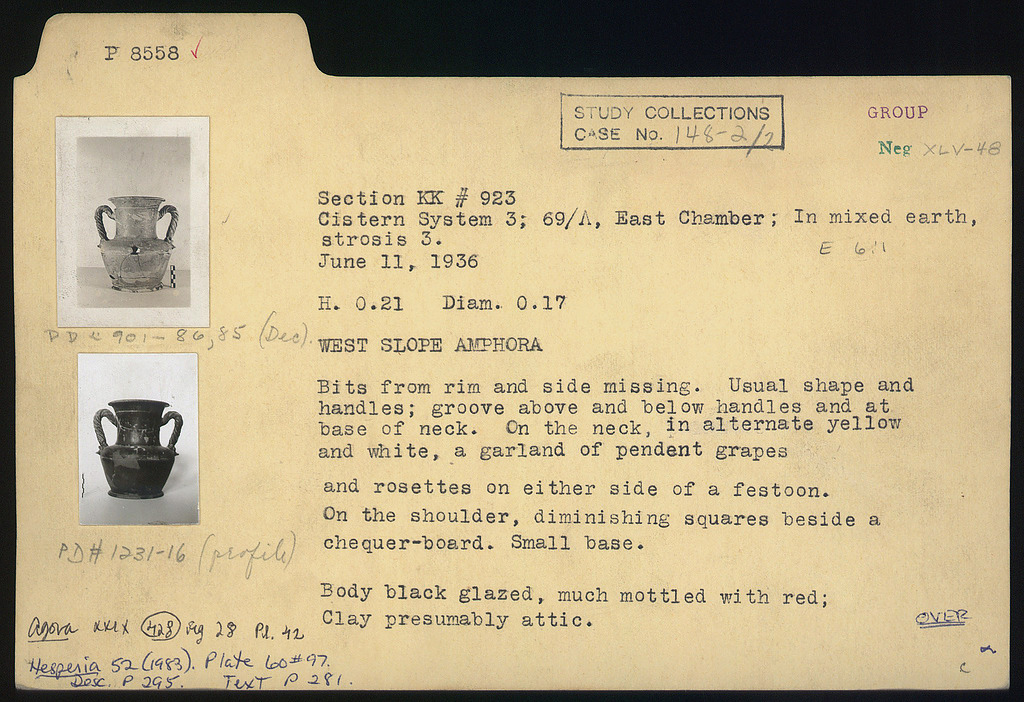 P 8558 ✓
STUDY COLLECTIONS
CASE No. 148-2/2
GROUP
Neg XLV-48
Section KK # 923
Cistern System 3; 69/Λ, East Chamber; In mixed earth,
strosis 3.
E 6:1
June 11, 1936
H. 0.21 Diam. 0.17
PD # 901-86,85 (Dec).
WEST SLOPE AMPHORA
Bits from rim and side missing. Usual shape and
handles; groove above and below handles and at
base of neck. On the neck, in alternate yellow
and white, a garland of pendent grapes
and rosettes on either side of a festoon.
On the shoulder, diminishing squares beside a
chequer-board. Small base.
PD# 1231-16 (profile)
Body black glazed, much mottled with red;
Clay presumably attic.
OVER
Agora XXIX 428 Fig 28 Pl. 42
Hesperia 52 (1983). Plate 60 #97.
Desc. P 295. Text P 281.
c